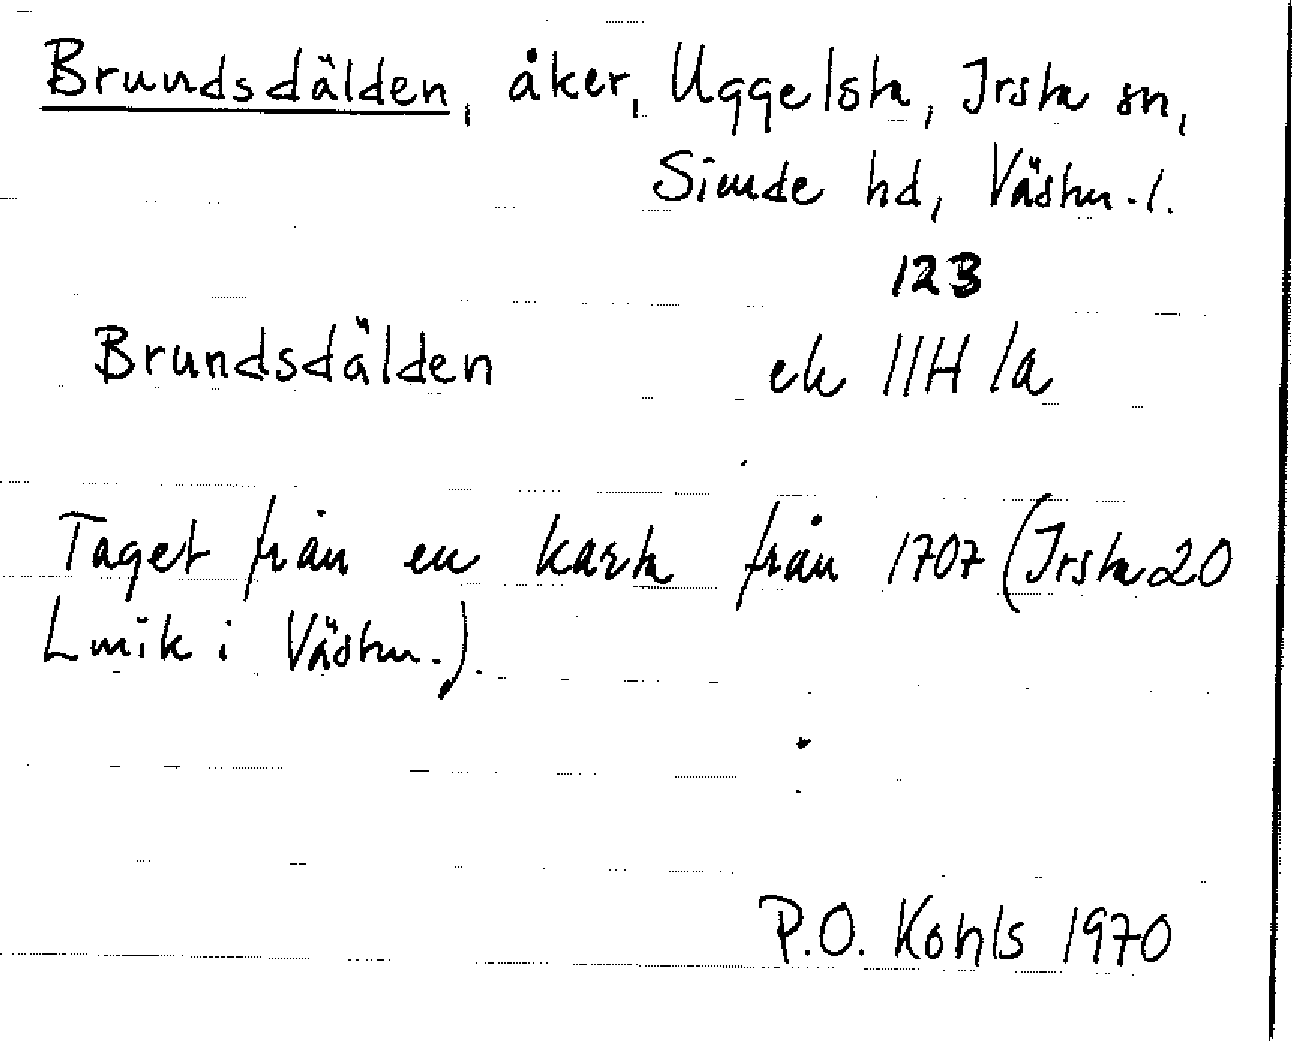 Brundsdälden, åker, Uggelsta, Irsta sn,
Siende hd, Västm. l.
123
Brundsdälden ek 11H 1a
Taget från en karta från 1707 (Irsta 20
Lmik i Västm.).
P.O. Kohls 1970